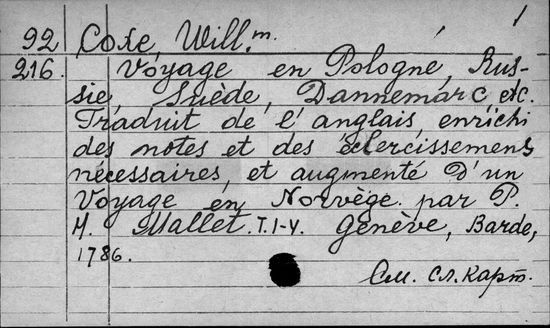 1
92 Coxe, Will.m
216. Voyage en Pologne, Rus-
sie, Suède, Dannemarc etc.
Traduit de l'anglais enrichi
des notes et des éclercissemens
nécessaires, et augmenté d'un
Voyage en Norvège par P.
H. Mallet. T. I-V. Genève, Barde,
1786.
См. сл. карт.